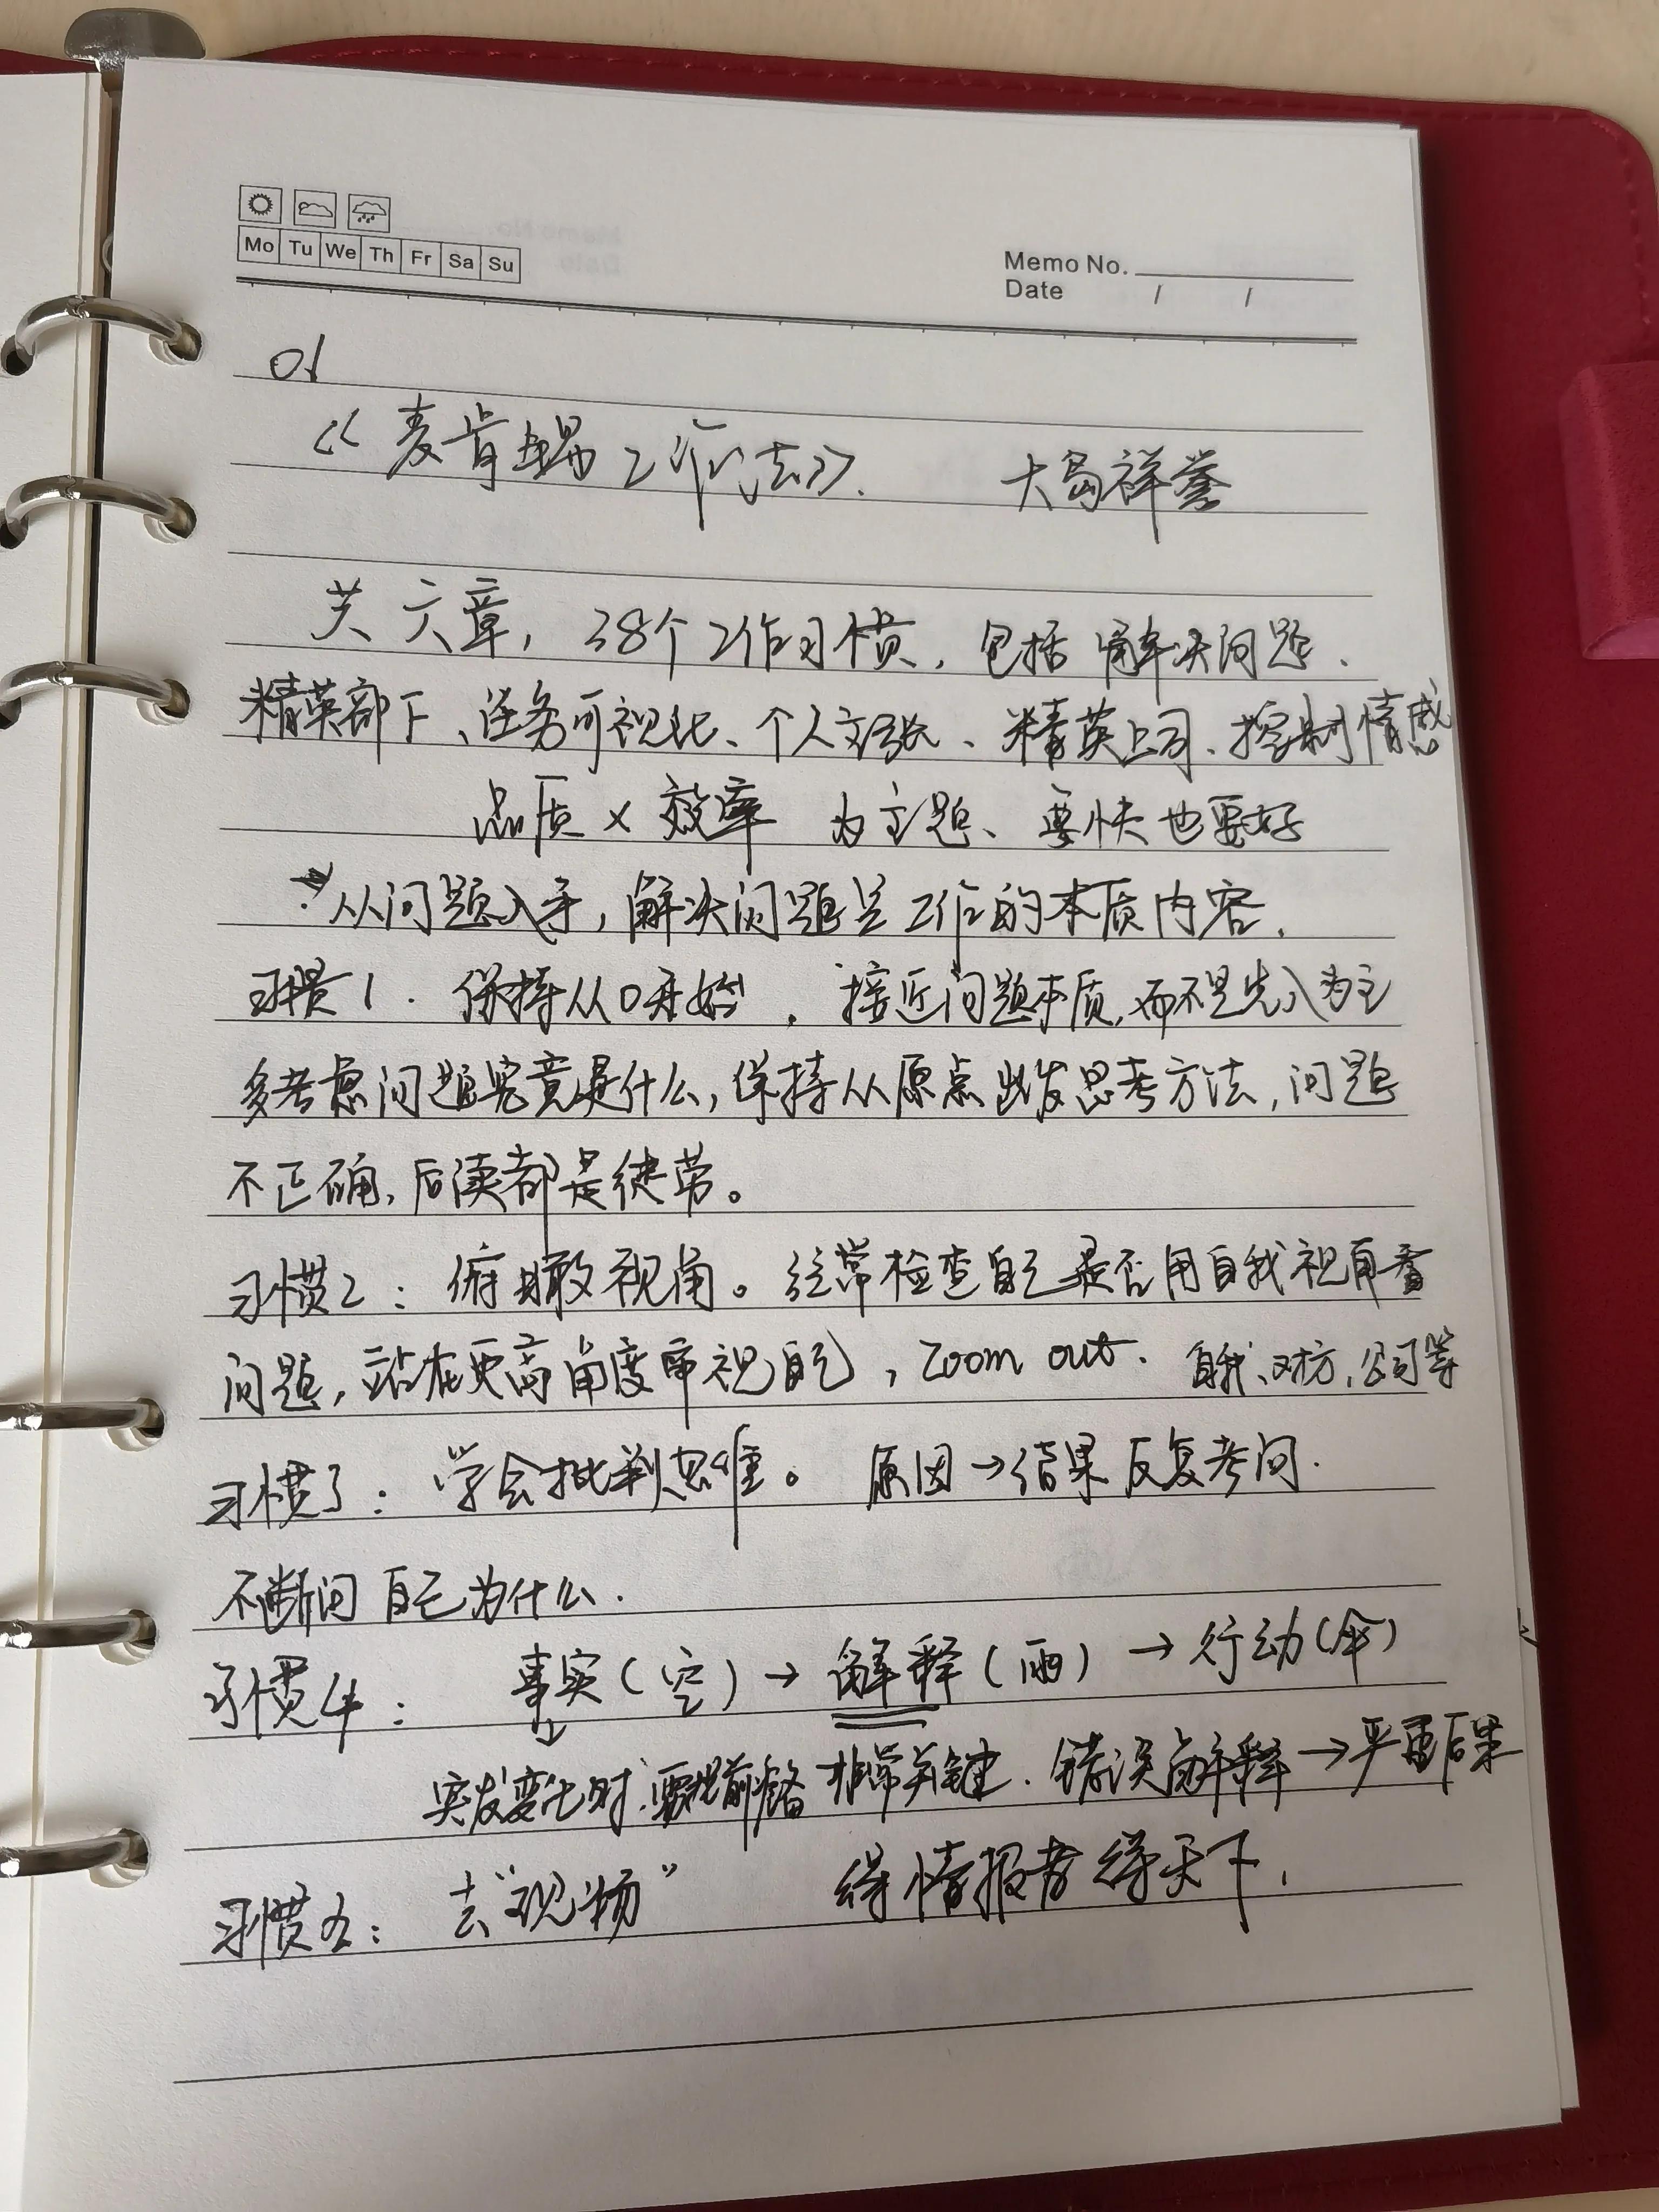 Mo Tu We Th Fr Sa Su
Memo No.
Date / /
01
《麦肯锡工作法》. 大岛祥誉
共六章, 38个工作习惯, 包括解决问题、
精英部下、任务可视化、个人文张、精英上司、控制情感
品质×效率 为主题、要快也要好
从问题入手, 解决问题是工作的本质内容.
习惯1. 保持从0开始, 接近问题本质, 而不是先入为主
多考虑问题究竟是什么, 保持从原点出发思考方法, 问题
不正确, 后续都是徒劳。
习惯2: 俯瞰视角。经常检查自己是否用自我视角看
问题, 站在更高角度审视自己, zoom out. 自我、对方, 公司等
习惯3: 学会批判思维。 原因→结果 反复考问.
不断问自己为什么.
习惯4: 事实(空)→解释(雨)→行动(伞)
突发变化时, 要提前准备 非常关键. 错误解释→严重后果
习惯5: 去“现场” 得情报者得天下.